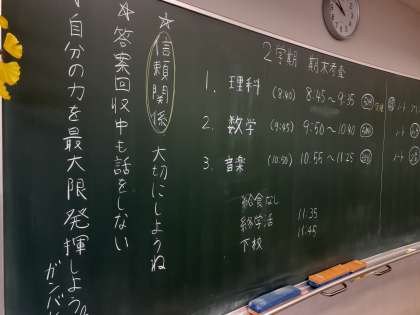 2学期 期末考査
1. 理科 (8:40) 8:45〜9:35 50分
2. 数学 (9:45) 9:50〜10:40
3. 音楽 (10:50) 10:55〜11:25
給食なし
終学活 11:35
下校 11:45
☆信頼関係 大切にしようね
☆答案回収中も話をしない
自分の力を最大限発揮しよう。
ガンバ